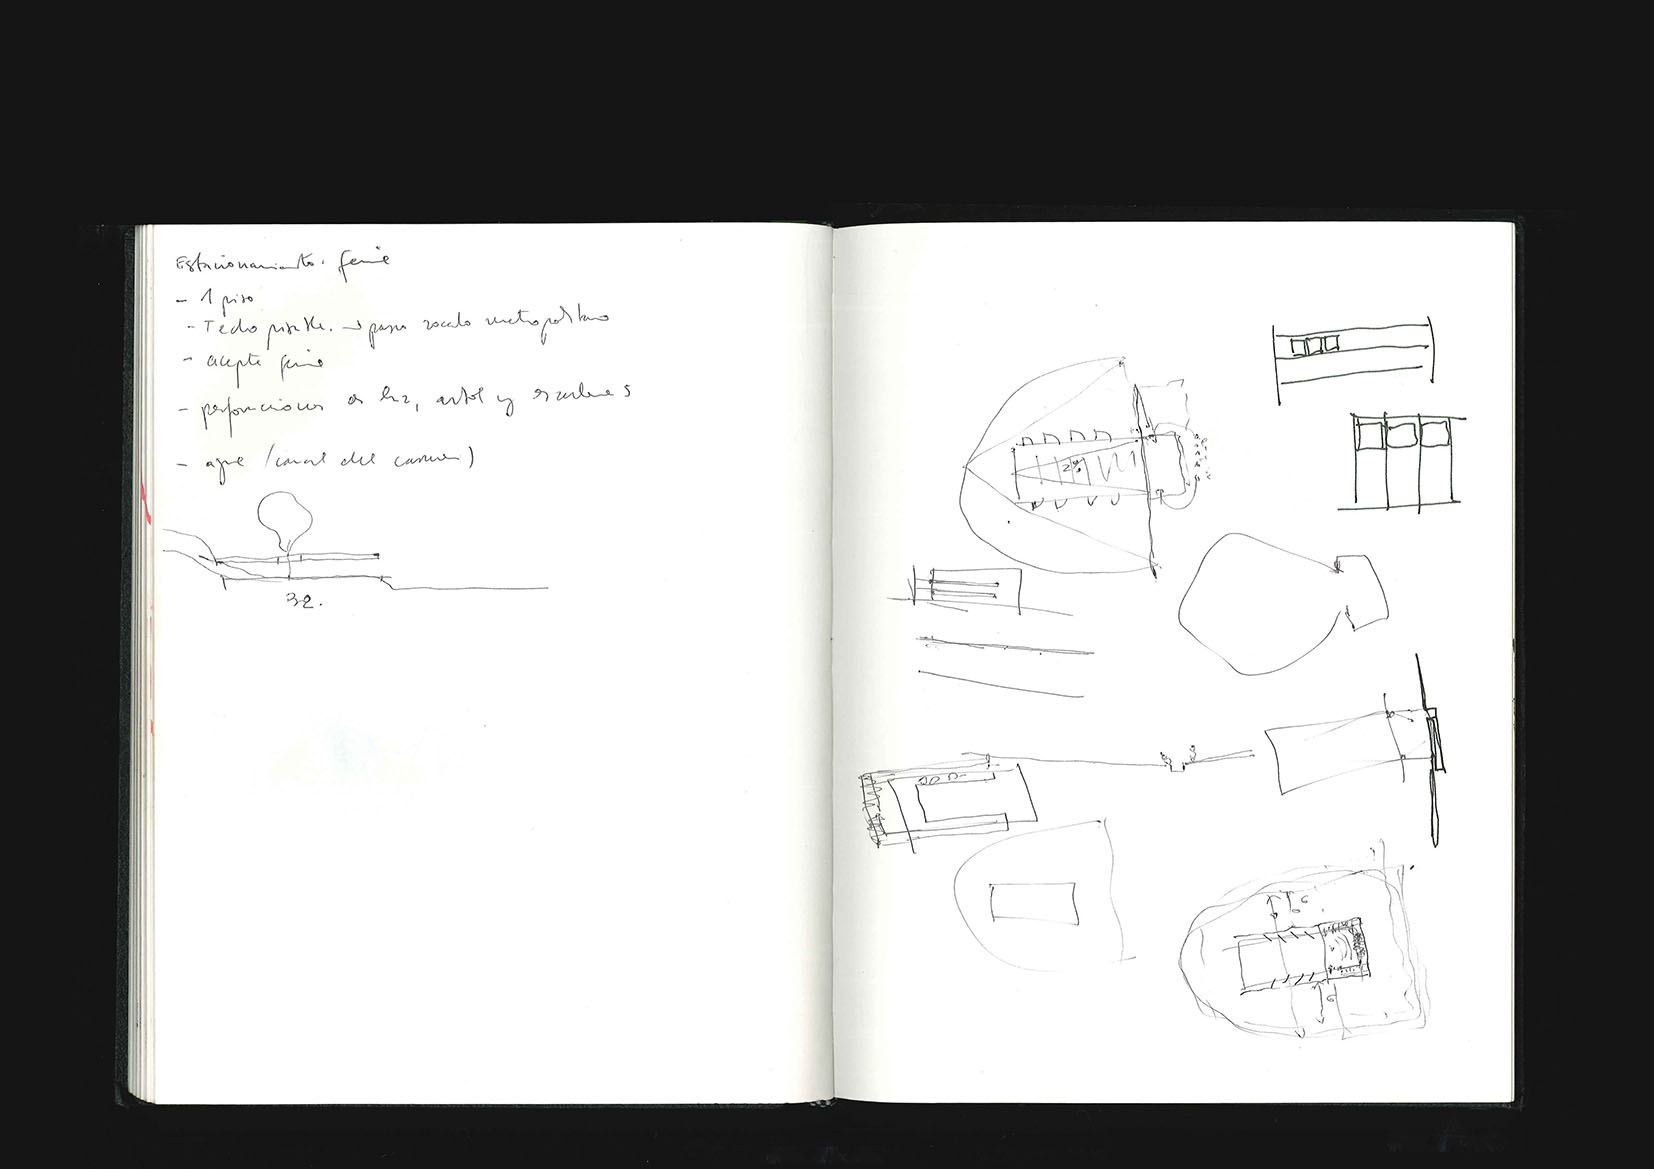 Estacionamiento. feria
- 1 piso
- Techo pisable. → paseo zocalo metropolitano
- acepte feria
- perforaciones de luz, arbol y escaleras
- agua (canal del carmen)
32.